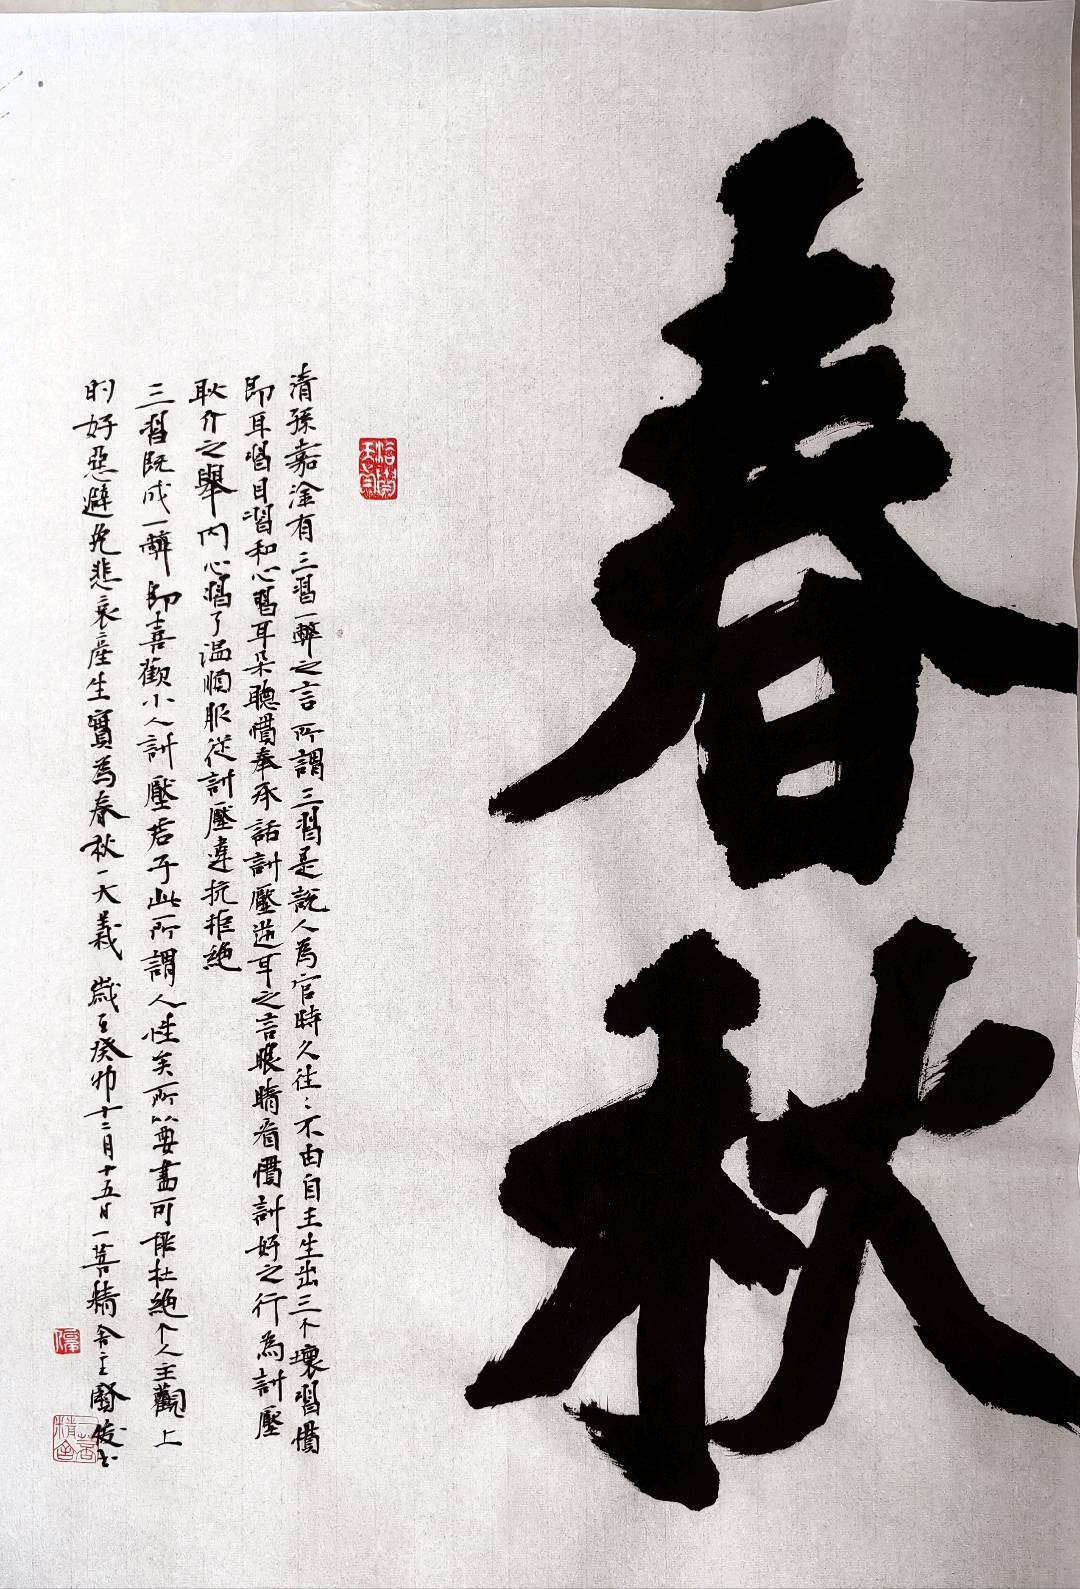 春秋
清孫嘉淦有三習一弊之言所謂三習是說人為官時久往〻不由自主生出三个壞習慣
即耳習目習和心習耳朵聽慣奉承話討壓逆耳之言眼睛看慣討好之行為討壓
耿介之舉內心習了溫順服從討壓違抗拒絶
三習既成一弊即喜歡小人討壓君子此所謂人性矣所以要盡可能杜絶个人主觀上
的好惡避免悲哀產生實為春秋一大義 歲在癸卯十二月十五日一菩精舍主賢俊书
一菩精舍